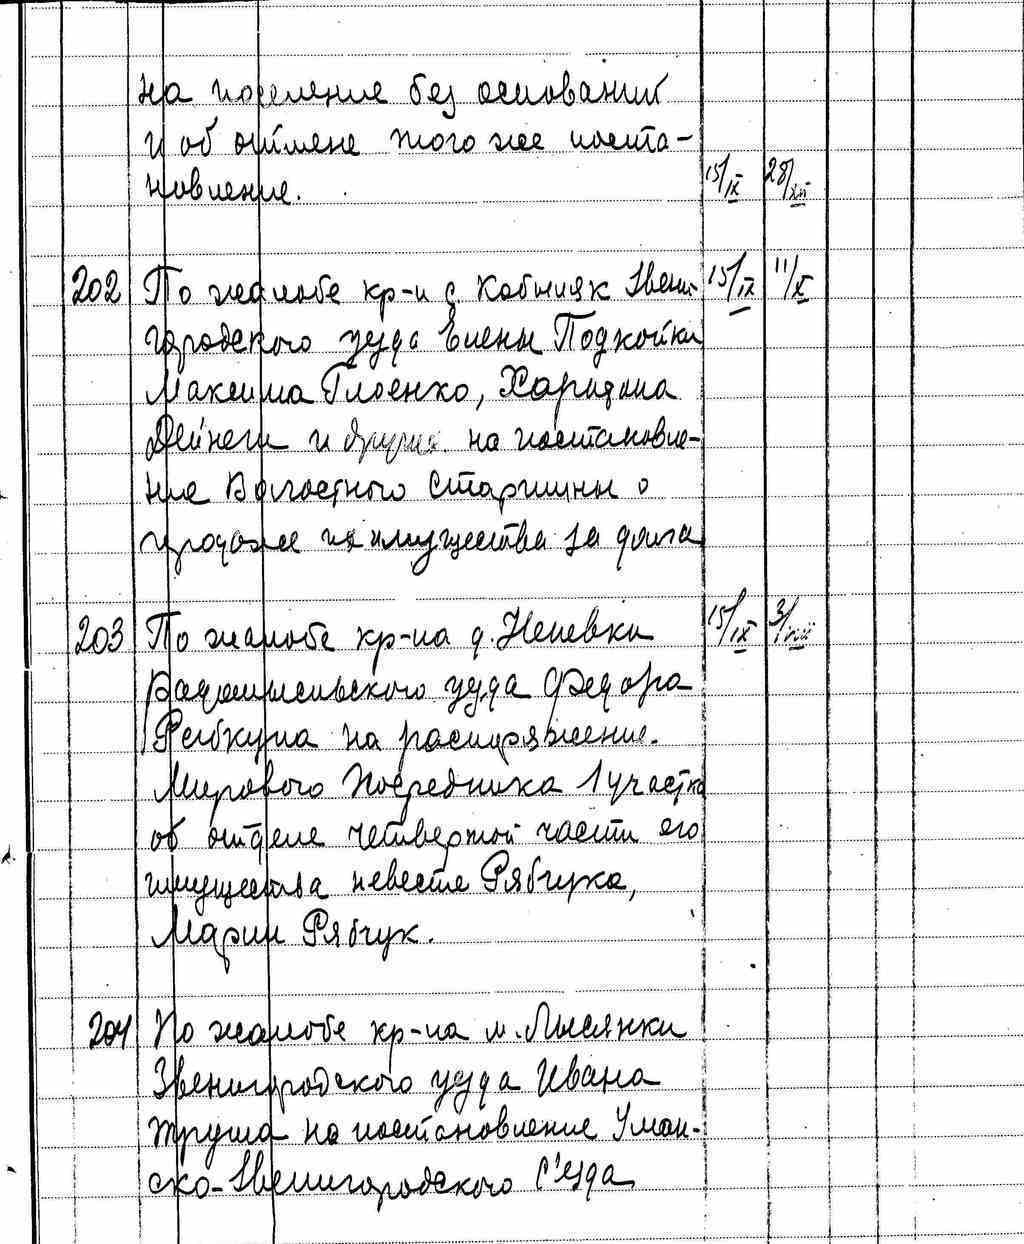 на поселение без оснований
и об отмене этого же поста-
новление. 15/IX 28/XII
202 По жалобе кр-н с. Кобыляк Звени- 15/IX 11/X
городского уезда Елены Подкойки
Максима Глоенко, Харитона
Дейнеги и других на постановле-
ние Волостного Старшины о
продаже их имущества за долга
203 По жалобе кр-на д. Неневки 15/IX 3/VIII
Радомысльского уезда Федора
на распоряжение.
Мирового Посредника 1 участка
об отделе четвертой части его
имущества невесте Рябчука,
Марии Рябчук.
204 По жалобе кр-на м. Лысянки
Звенигородского уезда Ивана
Труша на постановление Уман-
ско-Звенигородского С'езда